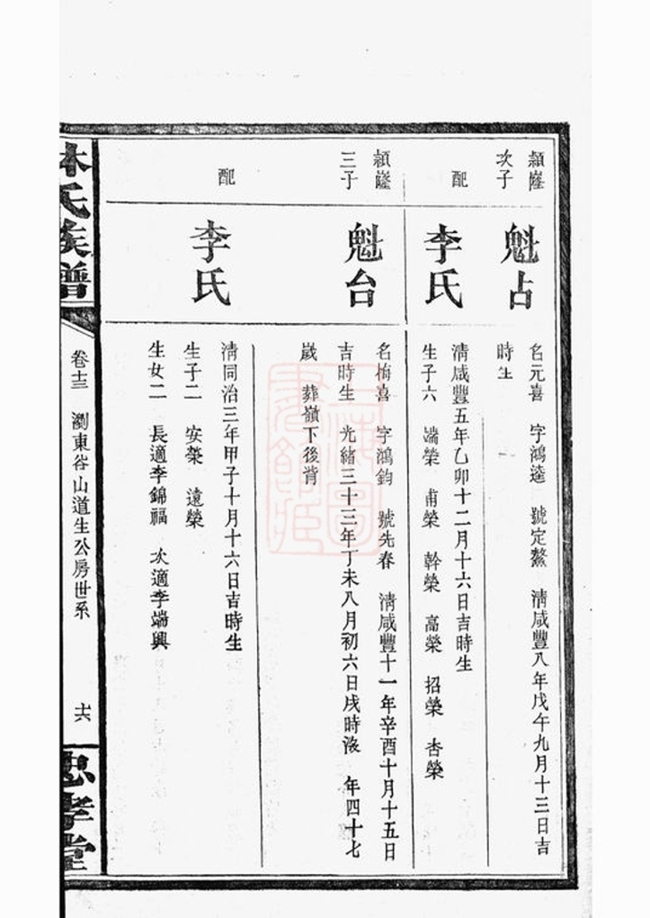 頴窿
次子
魁占
名元喜 字鴻逵 號定鰲 清咸豐八年戊午九月十三日吉
時生
配
李氏
清咸豐五年乙卯十二月十六日吉時生
生子六 端榮 甫榮 幹榮 高榮 招榮 杏榮
頴窿
三子
魁台
名梅喜 字鴻鈞 號先春 清咸豐十一年辛酉十月十五日
吉時生 光緒三十三年丁未八月初六日戌時歿 年四十七
歲 葬嶺下後背
配
李氏
清同治三年甲子十月十六日吉時生
生子二 安榮 遠榮
生女二 長適李錦福 次適李端興
林氏族譜
卷十三 瀏東谷山道生公房世系
十六
忠孝堂